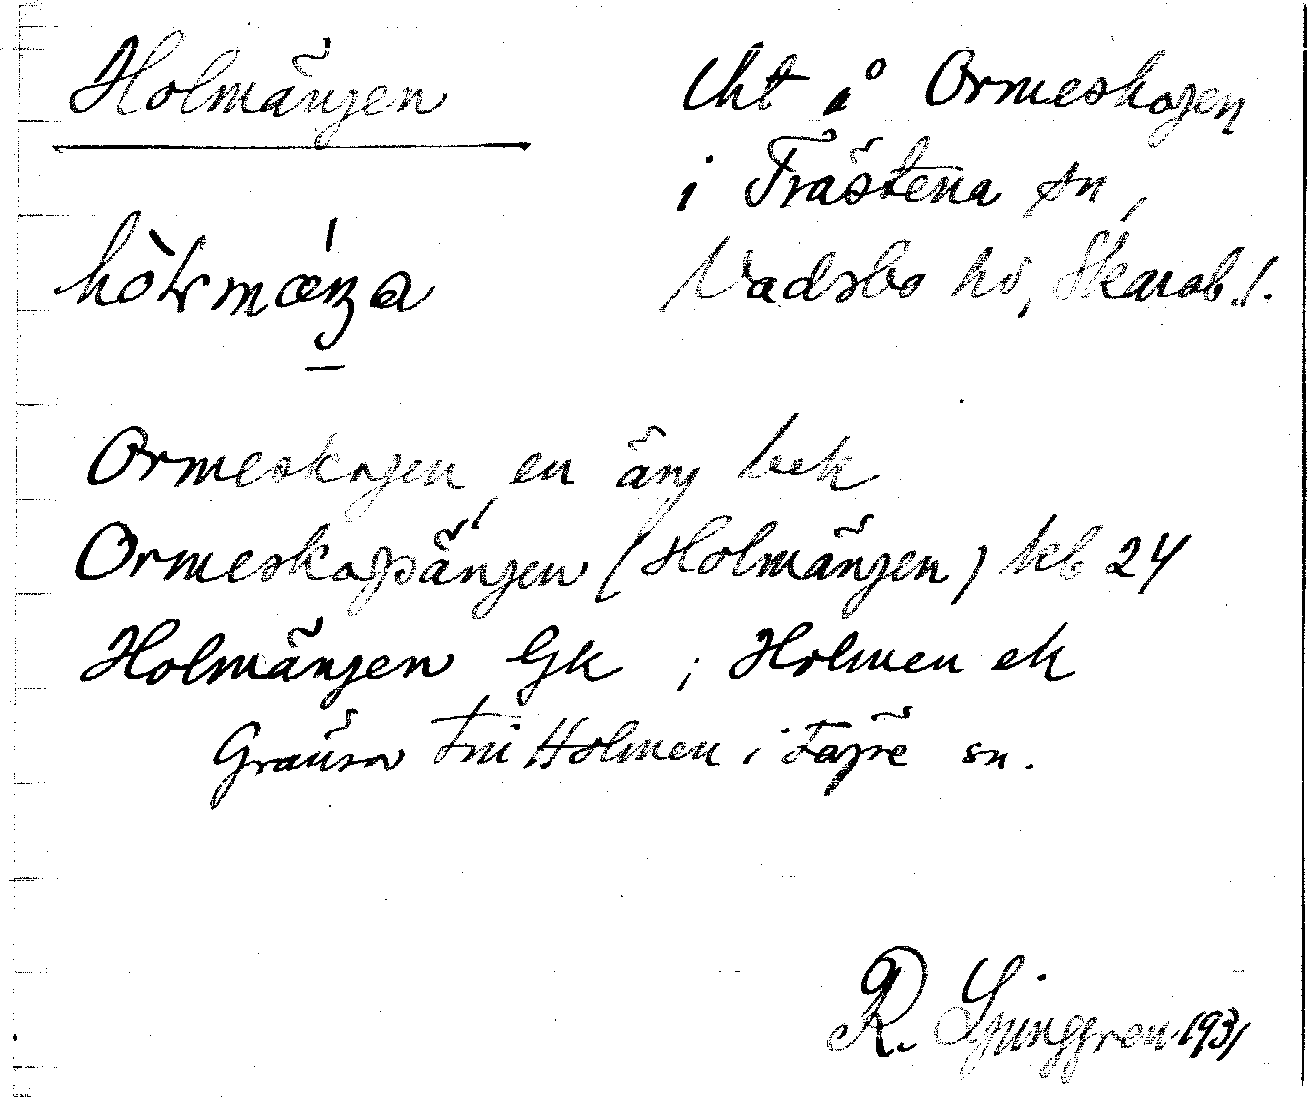 Holmängen
Uht å Ormeskogen
i Trästena sn,
Vadsbo hd, Skarab.l.
Ormeskogen, en äng bek
Ormeskogsängen (Holmängen) kb 24
Holmängen Gk ; Holmen ek
Gräns Holmen i Fägre sn.
R. Ljunggren 1931